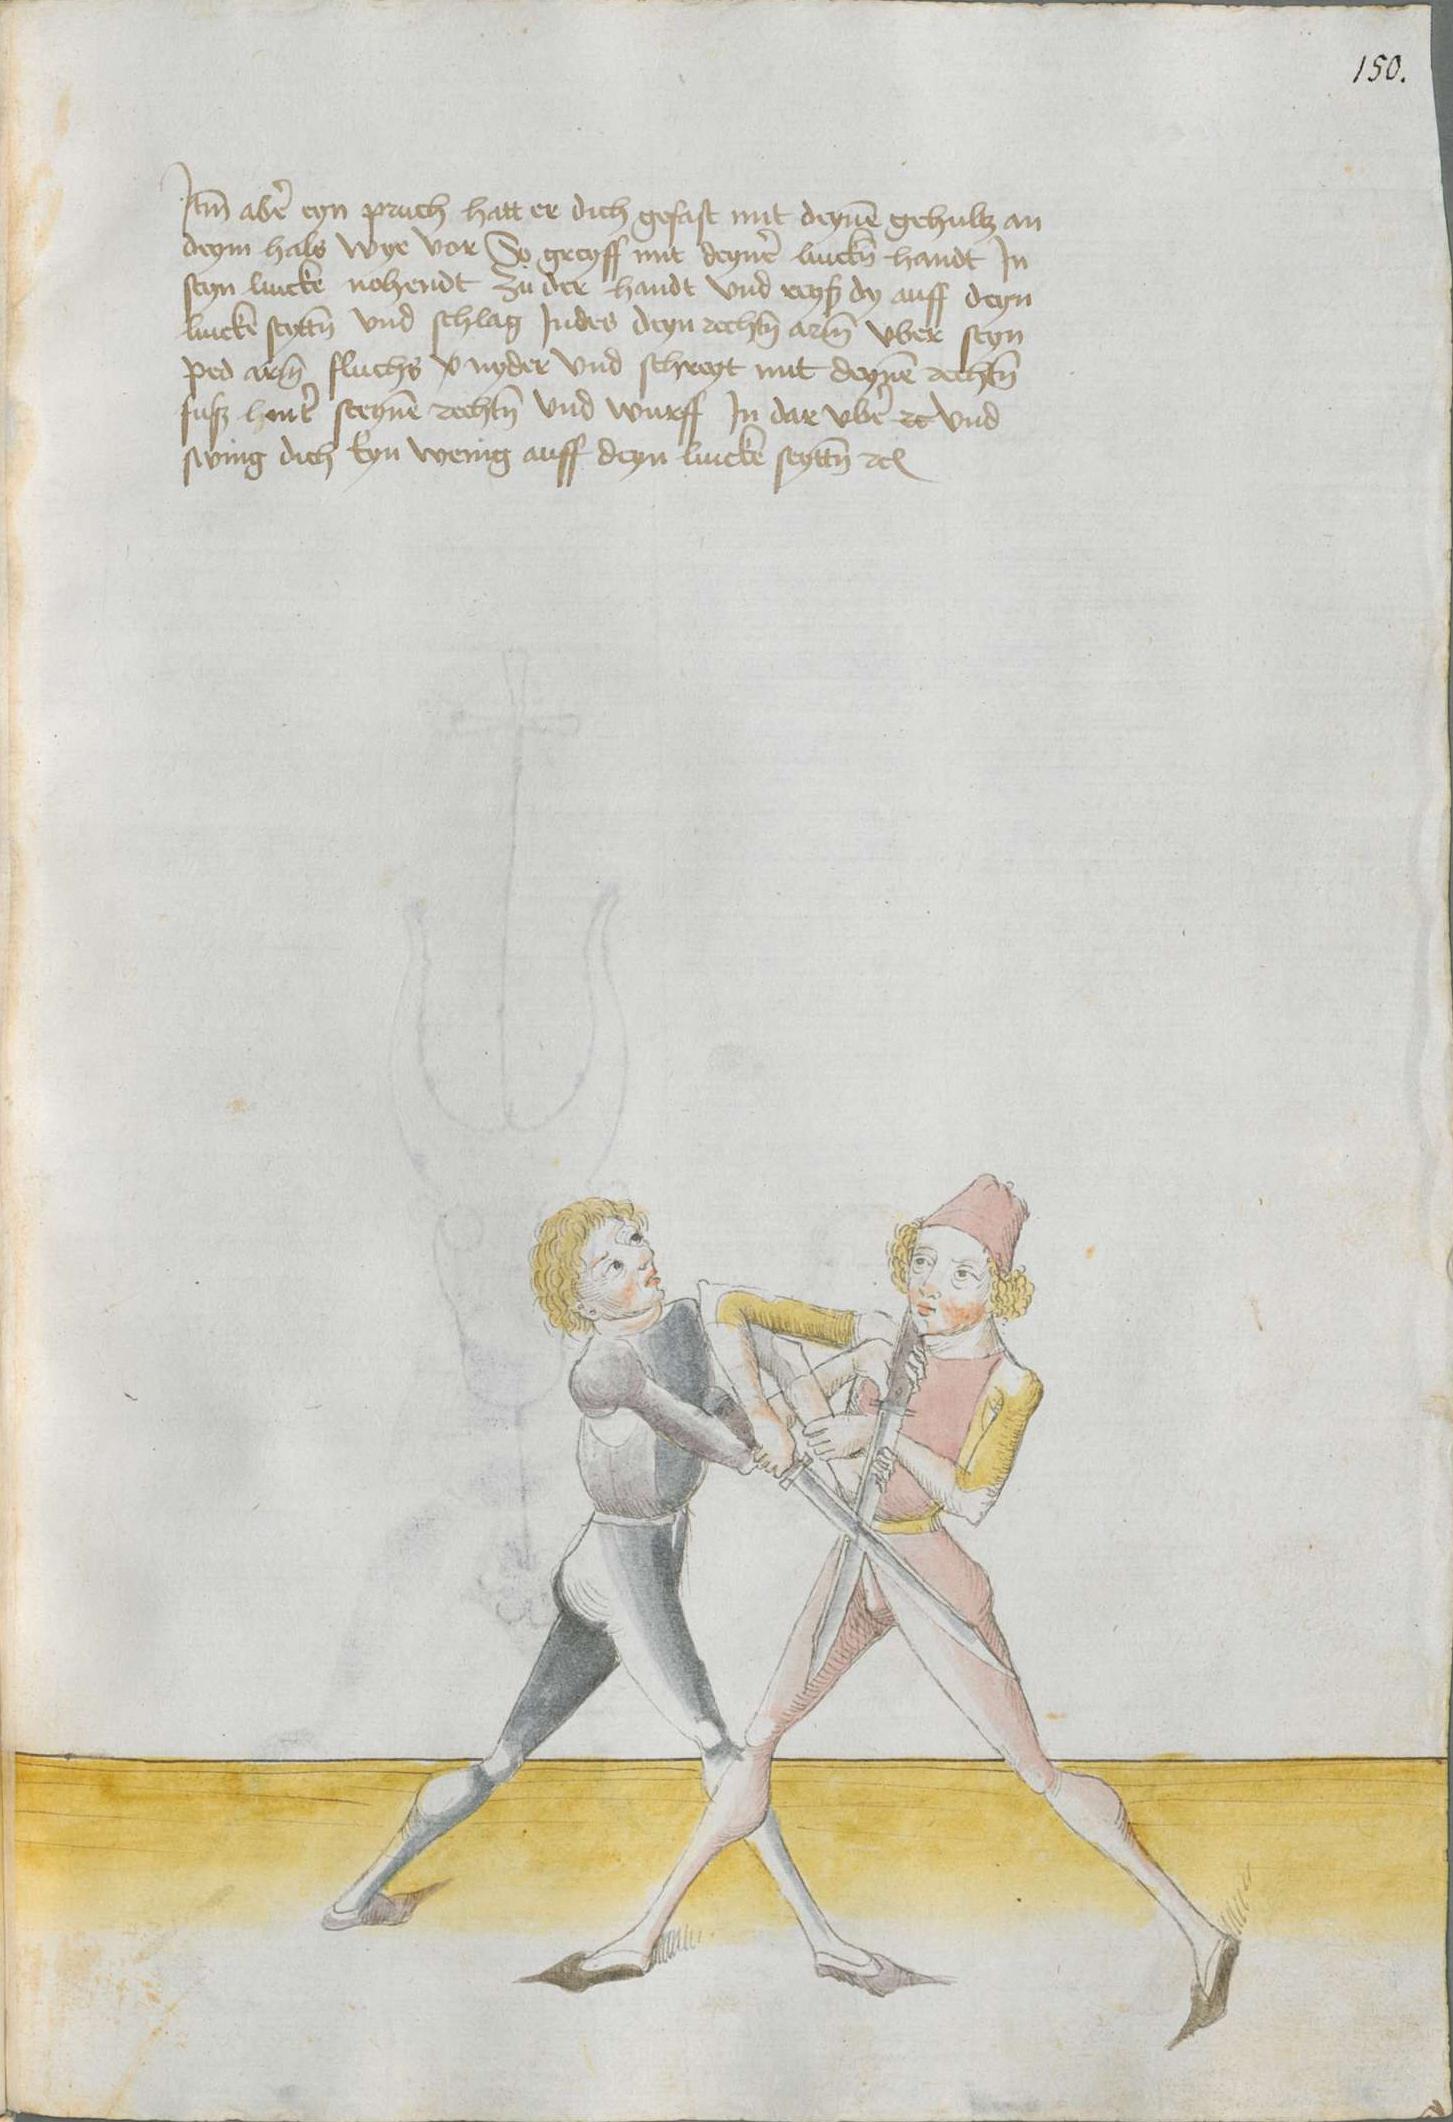 150.
Itm̄ abe͛ eyn pruch hatt er dich gefast mit deynē gehultz an
deym hals wye vor So greyff mit deyne͛ linckn̄ handt In
seyn lincke nohendt zů der handt vnd reyß dy auff deyn
linckē seyttn̄ vnd schlag Indes deyn rechtn̄ arm̄ vber seyn
ped arm̄ fluchs v̈ nyder vnd schreyt mit deynē rechtn̄
fuß hint͛ seynē rechtn̄ vnd wurff In dar vbe͛ ꝛc vnd
swing dich eyn wenig auff deyn linckē seyttn̄ ꝛc